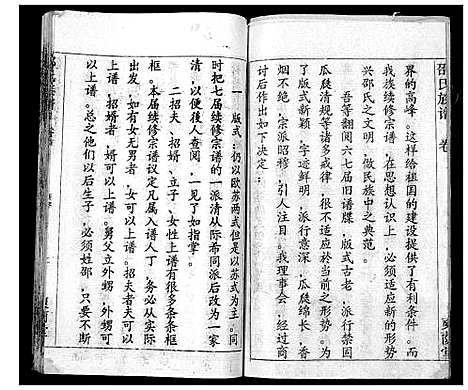 邵氏族谱 卷
界的高峰。这样给祖国的建设提供了有利条件。而
我族续修宗谱,在思想认识上,必须适应新的形势,
兴邵氏之文明,做民族中之典范。
吾等翻阅六七届旧谱牒,版式古老,派行禁固
瓜瓞清规等诸多戒律,很不适应於当前之形势。为
了版式新颖,字迹鲜明,派行意深,瓜瓞绵长,香
烟不绝,宗派昭穆,引人注目。我理事会,经过商
讨后作出如下决定:
一 版式:仍以欧苏两式但是以苏式为主。同
时把七届续修宗谱的一派清从际希同派后改为一家
清,以便後人查阅,一见了如指掌。
二招夫、招婿、立子、女性上谱有很多条条框
框。本届续修宗谱议定凡属入谱人丁,务必从实际
出发,如有女无男者,女可以上谱。招夫者夫可以
上谱,招婿者,婿可以上谱。舅父立外甥,外甥可
以上谱。总之他们以后生子,必须姓邵,只要不断